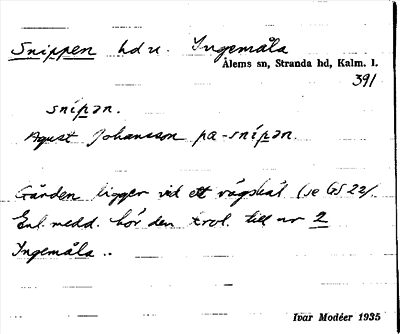 Snippen hd u. Ingemåla
Ålems sn, Stranda hd, Kalm. l.
391
snípən.
Agust Johansson pa-snípən.
Gården ligger vid ett vägskäl (se GS 22).
Enl. medd. hör den trol. till nr 2
Ingemåla..
Ivar Modéer 1935